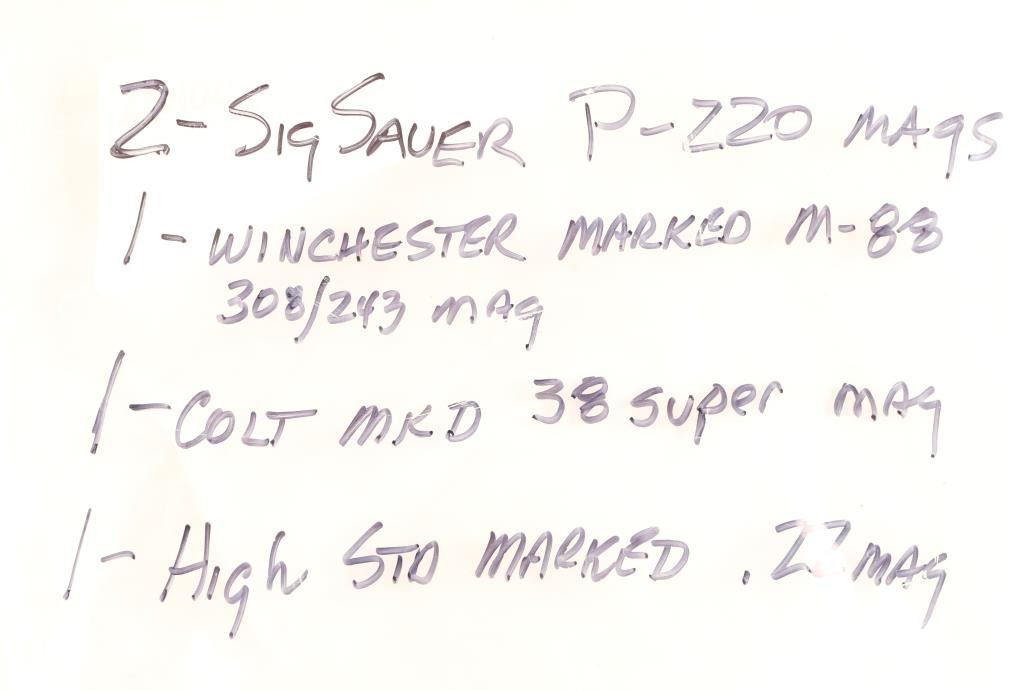 2- Sig SAUER P-220 MAgS
1- WINCHESTER MARKED M-88
308/243 mAg
1- COLT MKD 38 super mAg
1- High STD MARKED .22 MAg